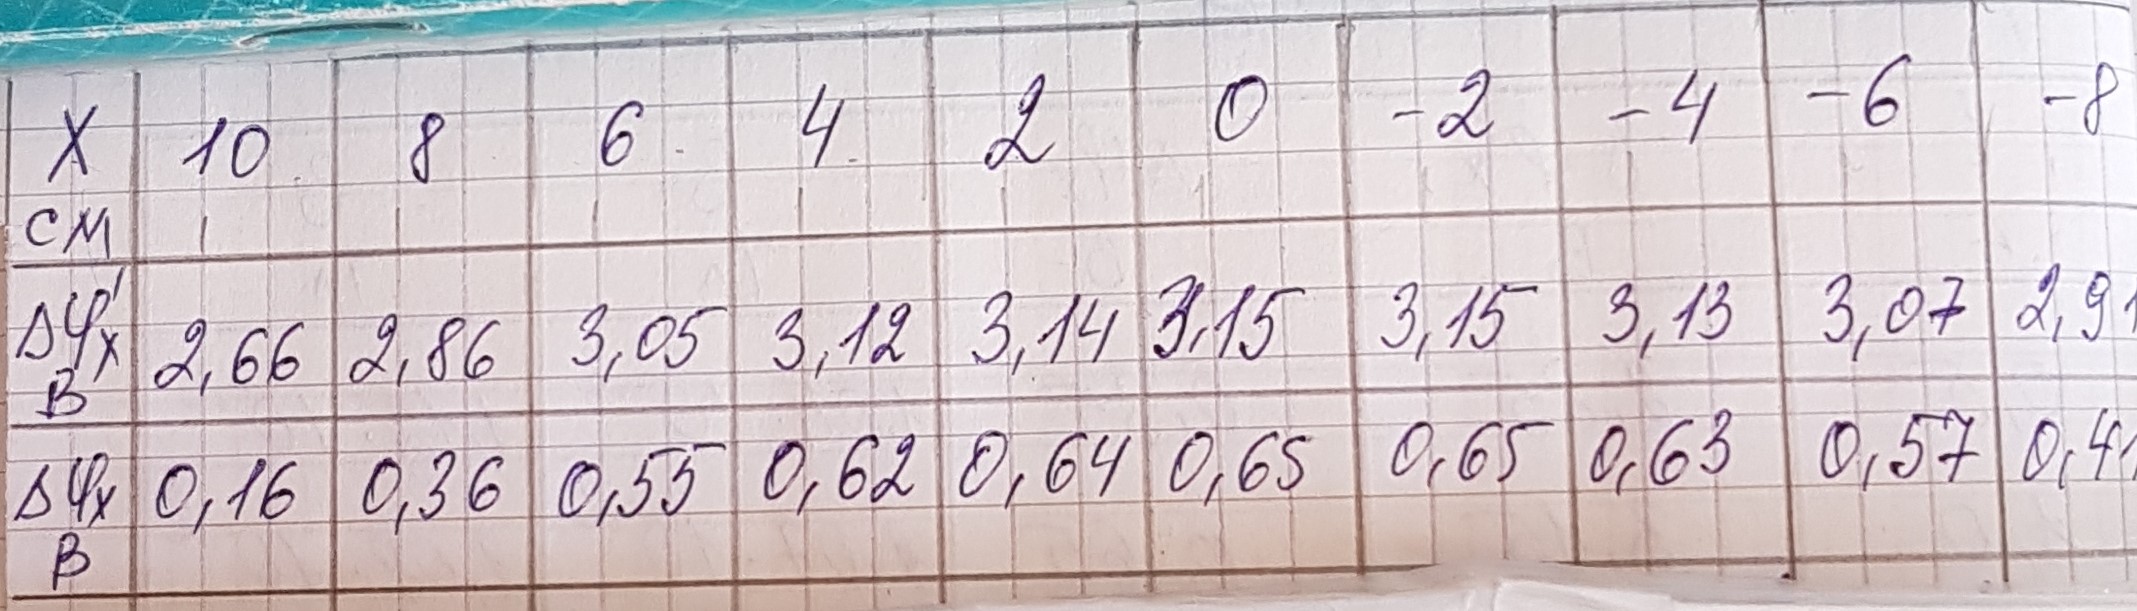 X 10 8 6 4 2 0 -2 -4 -6 -8
см
Δφ'x 2,66 2,86 3,05 3,12 3,14 3,15 3,15 3,13 3,07 2,91
В
Δφx 0,16 0,36 0,55 0,62 0,64 0,65 0,65 0,63 0,57 0,41
В